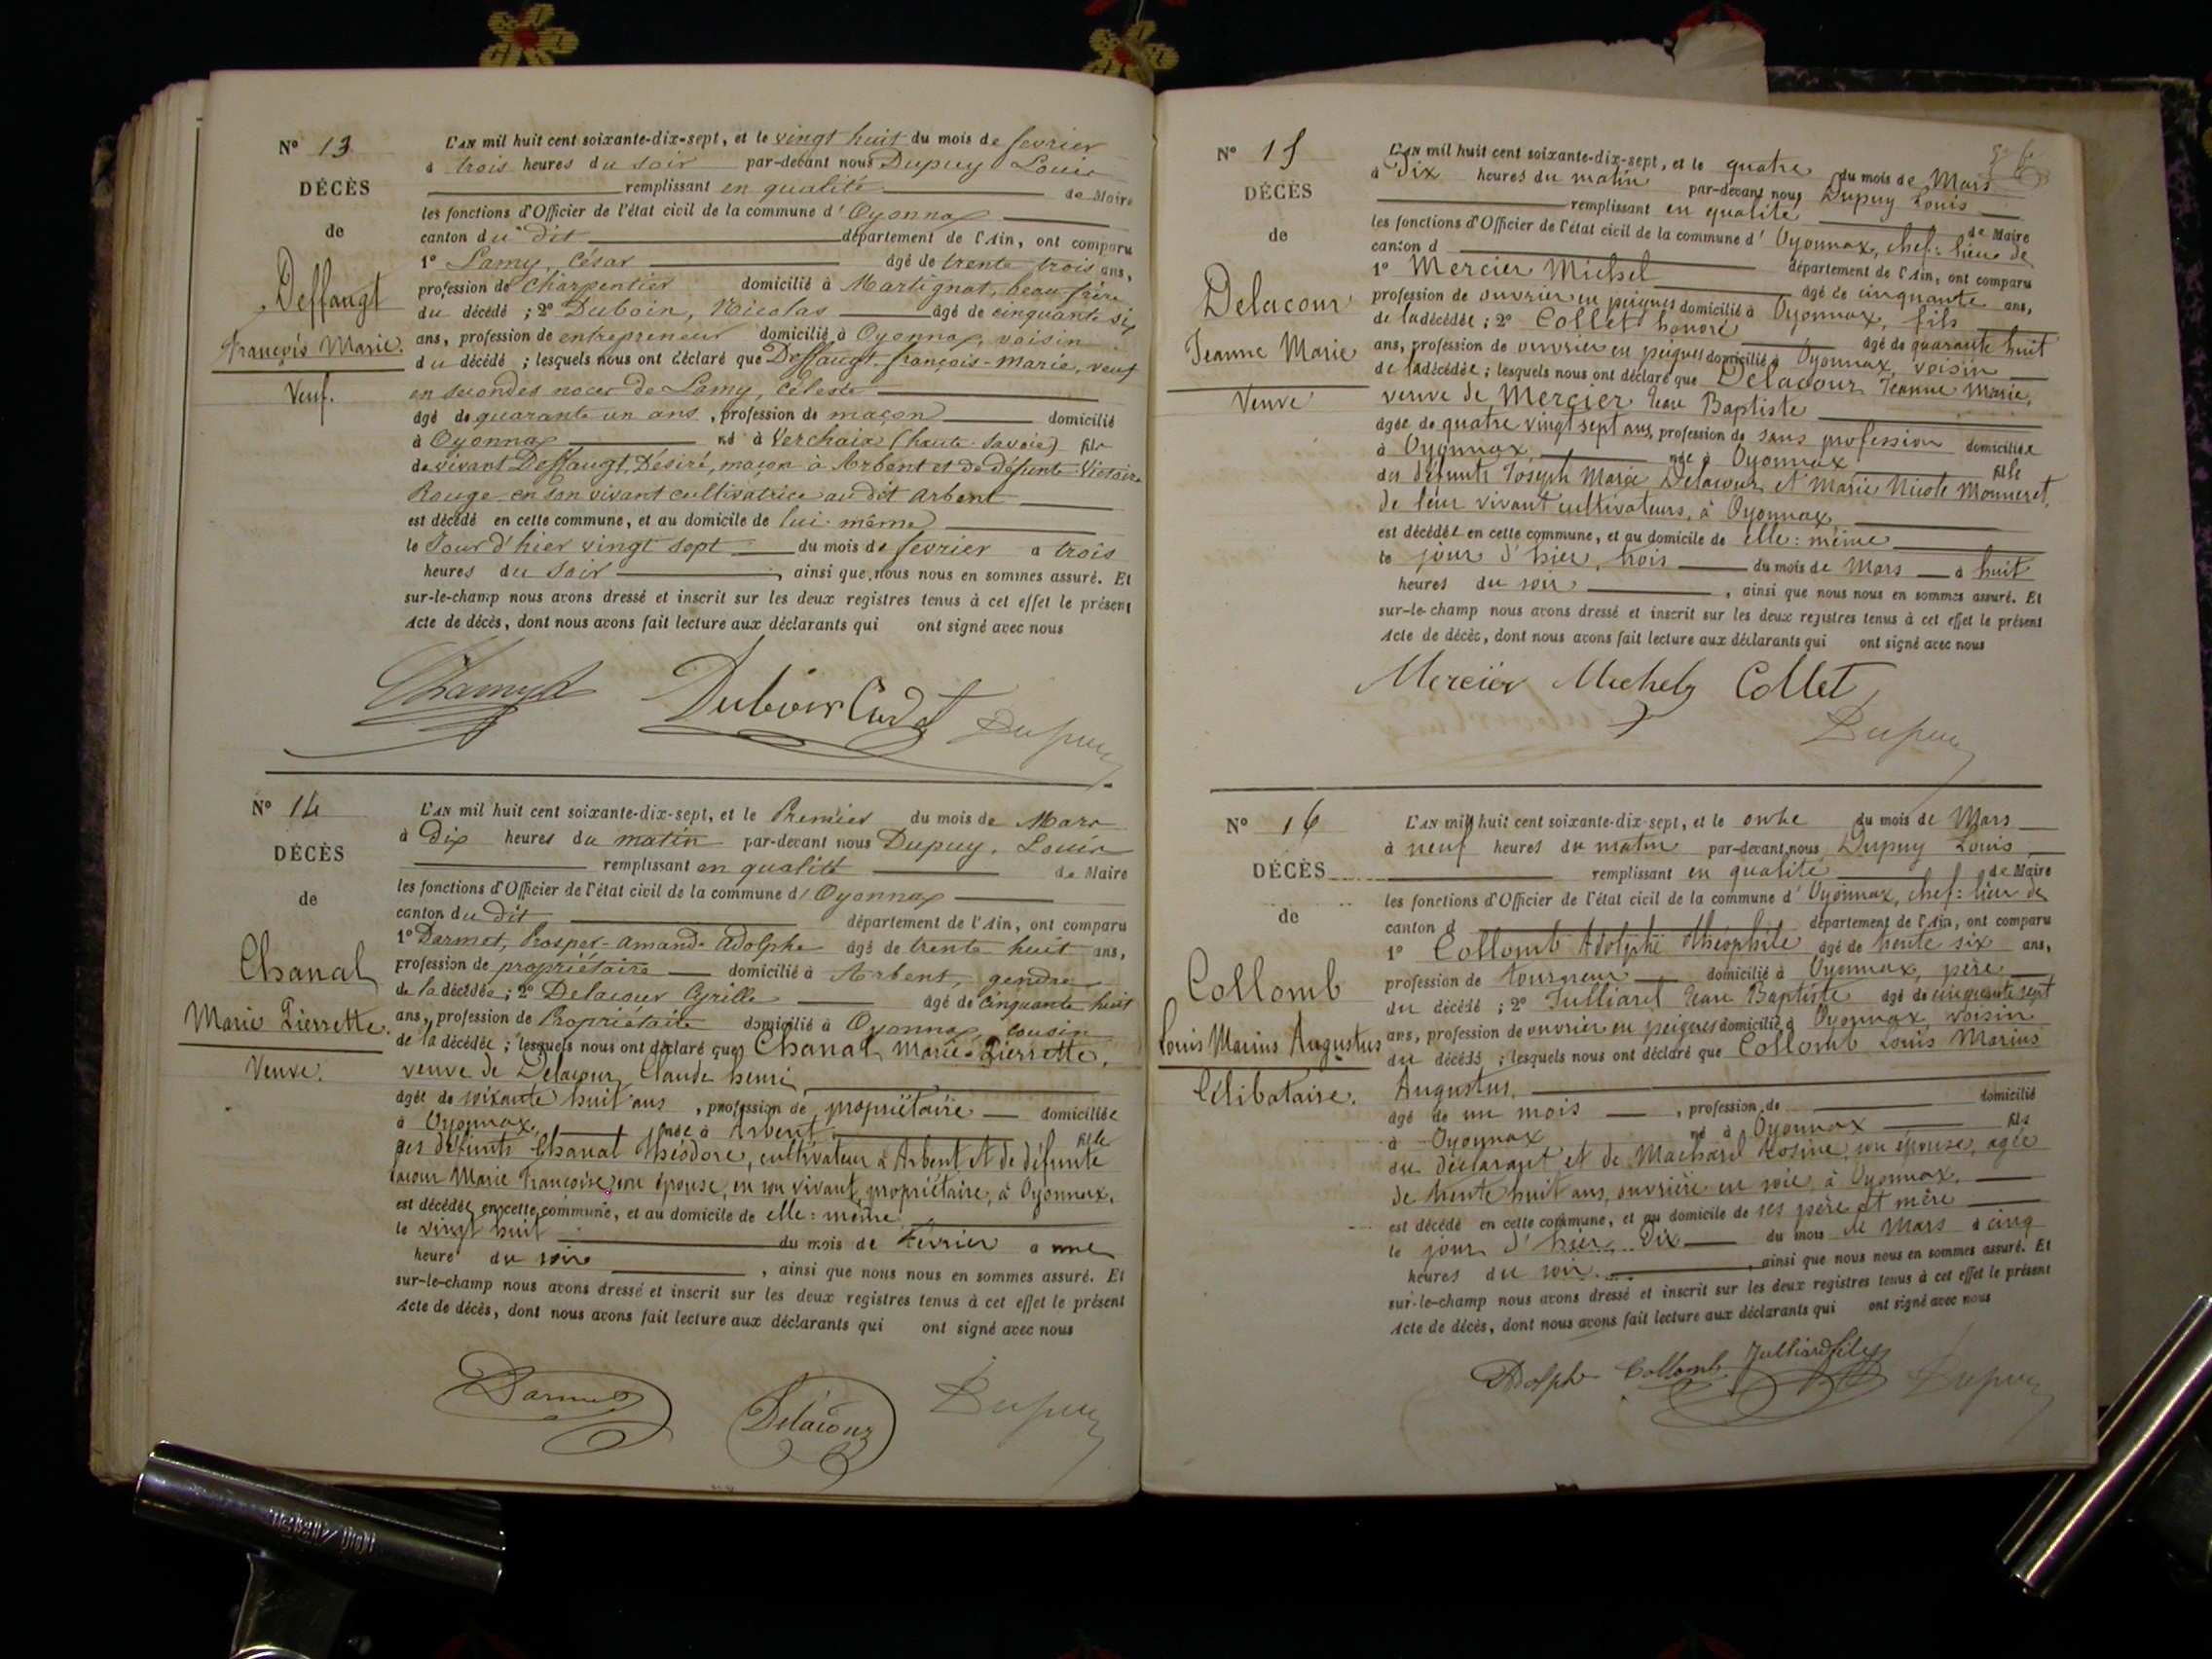 N° 13
DÉCÈS
de
Deffaugt
François Marie.
Veuf.
L'AN mil huit cent soixante-dix-sept, et le vingt huit du mois de fevrier
à trois heures du soir par-devant nous Dupuy Louis
remplissant en qualité de Maire
les fonctions d'Officier de l'état civil de la commune d'Oyonnax
canton du dit département de l'Ain, ont comparu
1° Lamy, César âgé de trente trois ans,
profession de Charpentier domicilié à Martignat, beau frère
du décédé ; 2° Duboin, Nicolas âgé de cinquante six
ans, profession de entrepreneur domicilié à Oyonnax, voisin
du décédé ; lesquels nous ont déclaré que Deffaugt françois-Marie, veuf
en secondes noces de Lamy, Céleste
âgé de quarante un ans, profession de maçon domicilié
à Oyonnax né à Verchaix (haute-Savoie) fils
de vivant Deffaugt, Désiré, maçon à Arbent et de défunte Victoire
Rouge en son vivant cultivatrice au dit Arbent
est décédé en cette commune, et au domicile de lui-même
le Jour d'hier vingt sept du mois de fevrier à trois
heures du soir , ainsi que nous nous en sommes assuré. Et
sur-le-champ nous avons dressé et inscrit sur les deux registres tenus à cet effet le présent
Acte de décès, dont nous avons fait lecture aux déclarants qui ont signé avec nous
Dupuy
N° 14
DÉCÈS
de
Chanal
Marie Pierrette.
Veuve.
L'AN mil huit cent soixante-dix-sept, et le Premier du mois de Mars
à Dix heures du matin par-devant nous Dupuy, Louis
remplissant en qualité de Maire
les fonctions d'Officier de l'état civil de la commune d'Oyonnax
canton du dit département de l'Ain, ont comparu
1° Darmet, Prosper-Amand-Adolphe âgé de trente huit ans,
profession de propriétaire domicilié à Arbent, gendre
de la décédée ; 2° Delacour Cyrille âgé de Cinquante huit
ans, profession de Propriétaire domicilié à Oyonnax, cousin
de la décédée ; lesquels nous ont déclaré que Chanal Marie-Pierrette,
veuve de Delacour Claude henri
âgée de soixante huit ans , profession de propriétaire domiciliée
à Oyonnax, née à Arbent fille
des défunts Chanal Théodore, cultivateur à Arbent et de défunte
Lacour Marie Françoise, son épouse, en son vivant, propriétaire, à Oyonnax.
est décédée en cette commune, et au domicile de elle-même
le vingt huit du mois de Fevrier à une
heure du soir , ainsi que nous nous en sommes assuré. Et
sur-le-champ nous avons dressé et inscrit sur les deux registres tenus à cet effet le présent
Acte de décès, dont nous avons fait lecture aux déclarants qui ont signé avec nous
Darmet Delacour Dupuy
N° 15
DÉCÈS
de
Delacour
Jeanne Marie
Veuve
L'AN mil huit cent soixante-dix-sept, et le quatre du mois de Mars
à Dix heures du matin par-devant nous Dupuy Louis
remplissant en qualité de Maire
les fonctions d'Officier de l'état civil de la commune d'Oyonnax, chef-lieu de
canton d département de l'Ain, ont comparu
1° Mercier Michel âgé de cinquante ans,
profession de ouvrier en peignes domicilié à Oyonnax, fils
de la décédée ; 2° Collet honoré âgé de quarante huit
ans, profession de ouvrier en peignes domicilié à Oyonnax, voisin
de la décédée ; lesquels nous ont déclaré que Delacour Jeanne Marie,
veuve de Mercier Jean Baptiste
âgée de quatre vingt sept ans, profession de sans profession domiciliée
à Oyonnax, née à Oyonnax fille
des défunts Joseph Marie Delacour et Marie Nicole Monneret,
de leur vivant cultivateurs, à Oyonnax,
est décédée en cette commune, et au domicile de elle-même
le jour d'hier, trois du mois de Mars à huit
heures du soir , ainsi que nous nous en sommes assuré. Et
sur-le-champ nous avons dressé et inscrit sur les deux registres tenus à cet effet le présent
Acte de décès, dont nous avons fait lecture aux déclarants qui ont signé avec nous
Mercier Michel Collet
Dupuy
N° 16
DÉCÈS
de
Collomb
Louis Marius Augustus
Célibataire.
L'AN mil huit cent soixante-dix-sept, et le onze du mois de Mars
à neuf heures du matin par-devant nous Dupuy Louis
remplissant en qualité de Maire
les fonctions d'Officier de l'état civil de la commune d'Oyonnax, chef-lieu de
canton d département de l'Ain, ont comparu
1° Collomb Adolphe Théophile âgé de trente six ans,
profession de tourneur domicilié à Oyonnax, père
du décédé ; 2° Julliard Jean Baptiste âgé de cinquante sept
ans, profession de ouvrier en peignes domicilié à Oyonnax voisin
du décédé ; lesquels nous ont déclaré que Collomb Louis Marius
Augustus,
âgé de un mois , profession de domicilié
à Oyonnax né à Oyonnax fils
du déclarant et de Machard Rosine, son épouse, agée
de trente huit ans, ouvrière en soie, à Oyonnax.
est décédé en cette commune, et au domicile de ses père et mère
le jour d'hier, Dix du mois de Mars à cinq
heures du soir , ainsi que nous nous en sommes assuré. Et
sur-le-champ nous avons dressé et inscrit sur les deux registres tenus à cet effet le présent
Acte de décès, dont nous avons fait lecture aux déclarants qui ont signé avec nous
Adolphe Collomb Julliard fils Dupuy